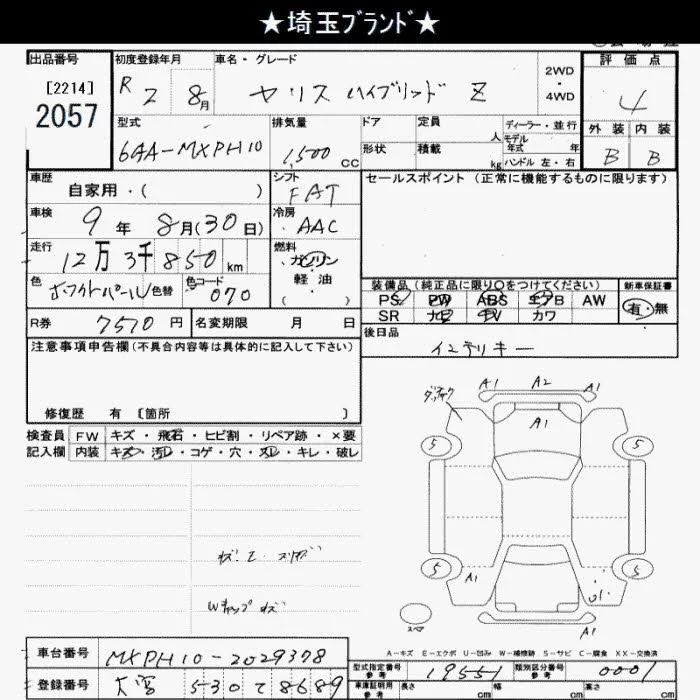 ★埼玉ブランド★
出品番号 初度登録年月 車名・グレード 評価点
[2214]
2057
R 2 8月 ヤリス ハイブリッド Z 2WD・4WD 4
型式 排気量 ドア 定員 人 ディーラー・並行 外装 内装
6AA-MXPH10 1,500 CC 形状 積載 kg モデル年式 年 ハンドル 左・右 B B
車歴 自家用・( ) シフト FAT セールスポイント (正常に機能するものに限ります)
車検 9年 8月(30日) 冷房 AAC
走行 12万3千850 km 燃料 ガソリン 軽油 ( )
色 ホワイトパール 色替 色コード 070
装備品(純正品に限り○をつけてください) 新車保証書
PS PW ABS エアB AW 有・無
SR ナビ TV カワ
R券 7510円 名変期限 月 日 後日品
注意事項申告欄(不具合内容等は具体的に記入して下さい) インテリキー
修復歴 有 [箇所 ]
検査員 FW キズ・飛石・ヒビ割・リペア跡・×要
記入欄 内装 キズ・汚レ・コゲ・穴・スレ・キレ・破レ
A1 A2 A1
A1
5 5
5 5
A1
スペア A1
Wキャップ キズ
A-キズ E-エクボ U-凹み W-補修跡 S-サビ C-腐食 XX-交換済
車台番号 MXPH10-2029378
型式指定番号 参考 19551 類別区分番号 参考 0001
登録番号 大宮 530 て 8689
車庫証明用 参考 長さ cm 幅 cm 高さ cm